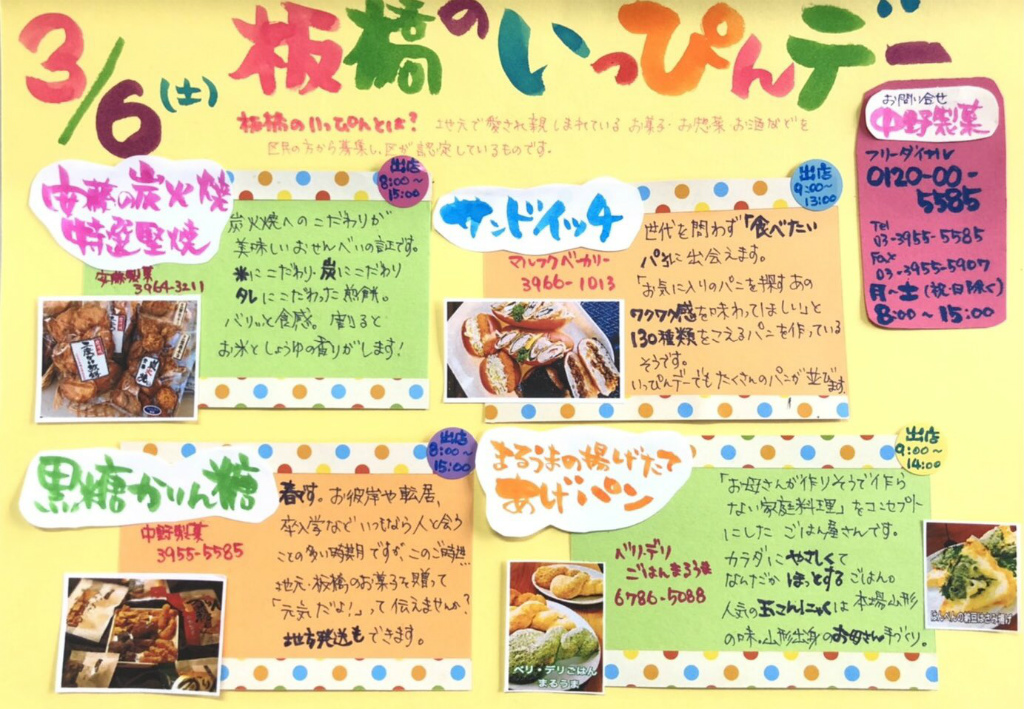 3/6(土) 板橋のいっぴんデー
板橋のいっぴんとは? 地元で愛され親しまれている お菓子・お惣菜 お酒などを
区民の方から募集し、区が認定しているものです。
お問い合せ
中野製菓
フリーダイヤル
0120-00-
5585
Tel
03-3955-5585
Fax
03-3955-5907
月~土(祝・日除く)
8:00~15:00
安藤の炭火焼
特選堅焼
安藤製菓
3964-3211
出店
8:00~
15:00
炭火焼へのこだわりが
美味しいおせんべいの証です。
米にこだわり・炭にこだわり
タレにこだわった煎餅。
バリッと食感。割ると
お米としょうゆの香りがします!
サンドイッチ
マルジュウベーカリー
3966-1013
出店
9:00~
13:00
世代を問わず「食べたい
パン」に出会えます。
「お気に入りのパンを探すあの
ワクワク感を味わってほしい」と
130種類をこえるパンを作っている
そうです。
いっぴんデーでもたくさんのパンが並びます
黒糖かりん糖
中野製菓
3955-5585
出店
8:00~
15:00
春です。お彼岸や転居、
卒入学などいつもなら人と会う
ことの多い時期ですが、このご時世…
地元・板橋のお菓子を贈って
「元気だよ!」って伝えませんか?
地方発送もできます。
まるうまの揚げたて
あげパン
ベリ・デリ
ごはんまるうま
6786-5088
出店
9:00~
14:00
「お母さんが作りそうで作ら
ない家庭料理」をコンセプト
にした ごはん屋さんです。
カラダにやさしくて
なんだか ほっとする ごはん。
人気の玉こんにゃくは本場山形
の味・山形出身のお母さん手づくり。
ベリ・デリごはん
まるうま
はんぺんの納豆はさみ揚げ